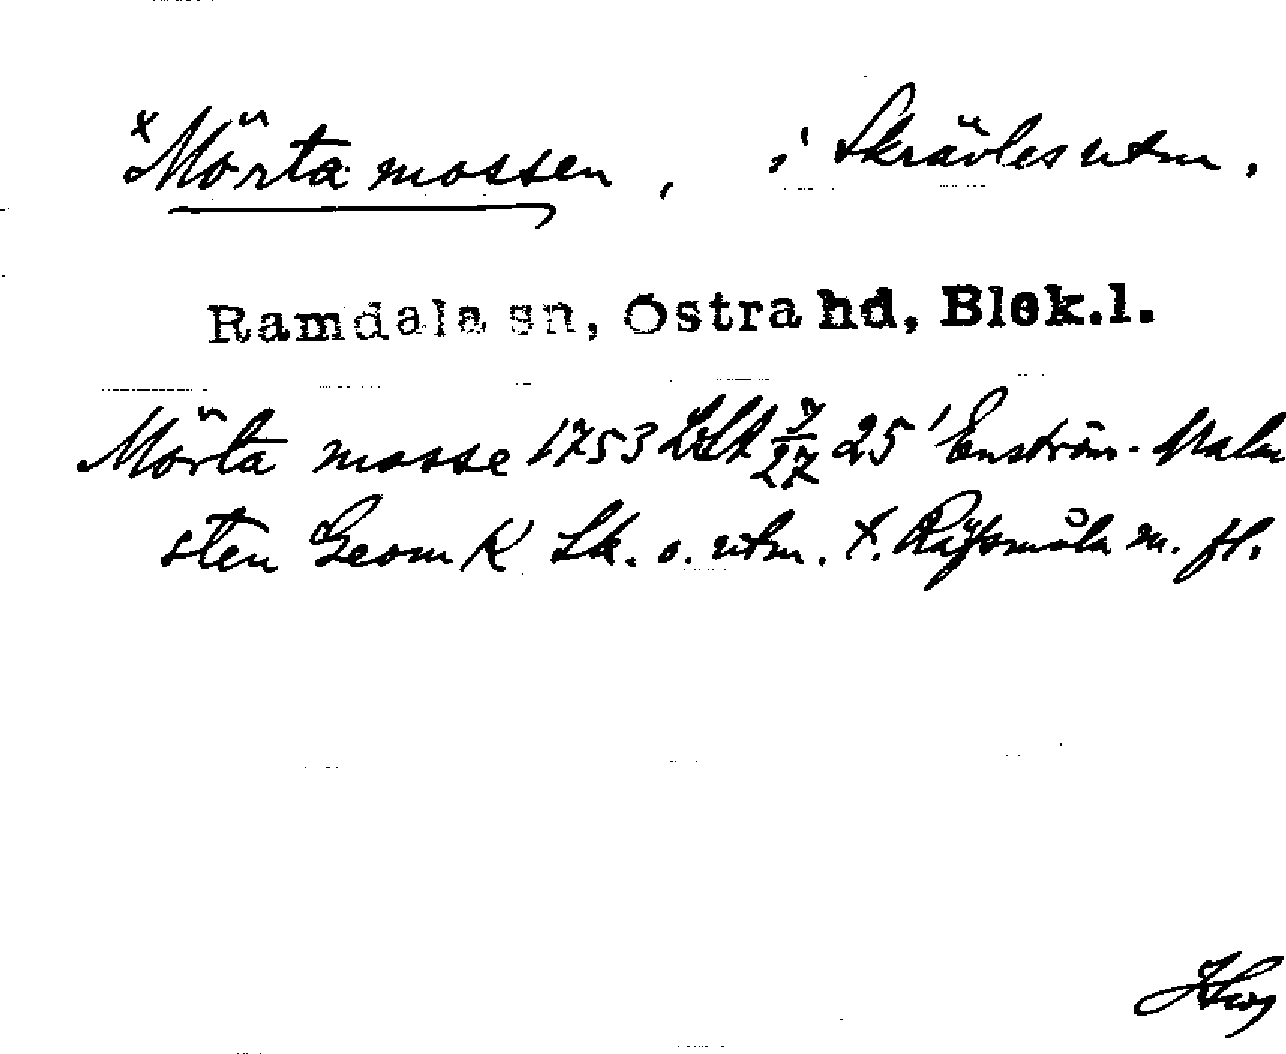 x Mörta mossen, i Skrävles utm.
Ramdala sn, Östra hd, Blek.l.
Mörta mosse 1753 LSA 7/27 25 Enström-Malm
sten Geom K Sk. o. utm. t. Rÿssmåla m. fl.